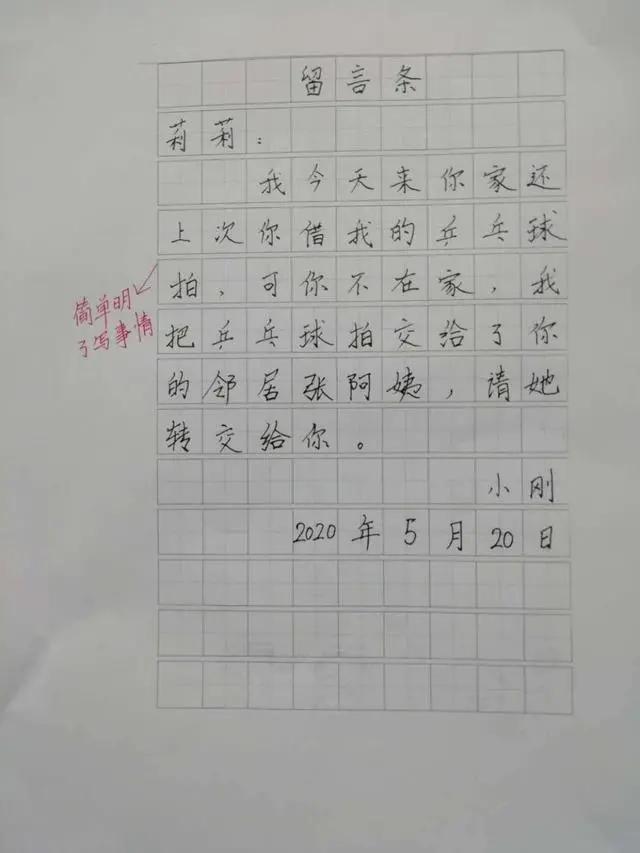 留言条
莉莉：
我今天来你家还
上次你借我的乒乓球
拍，可你不在家，我
把乒乓球拍交给了你
的邻居张阿姨，请她
转交给你。
小刚
2020年5月20日
简单明
了写事情